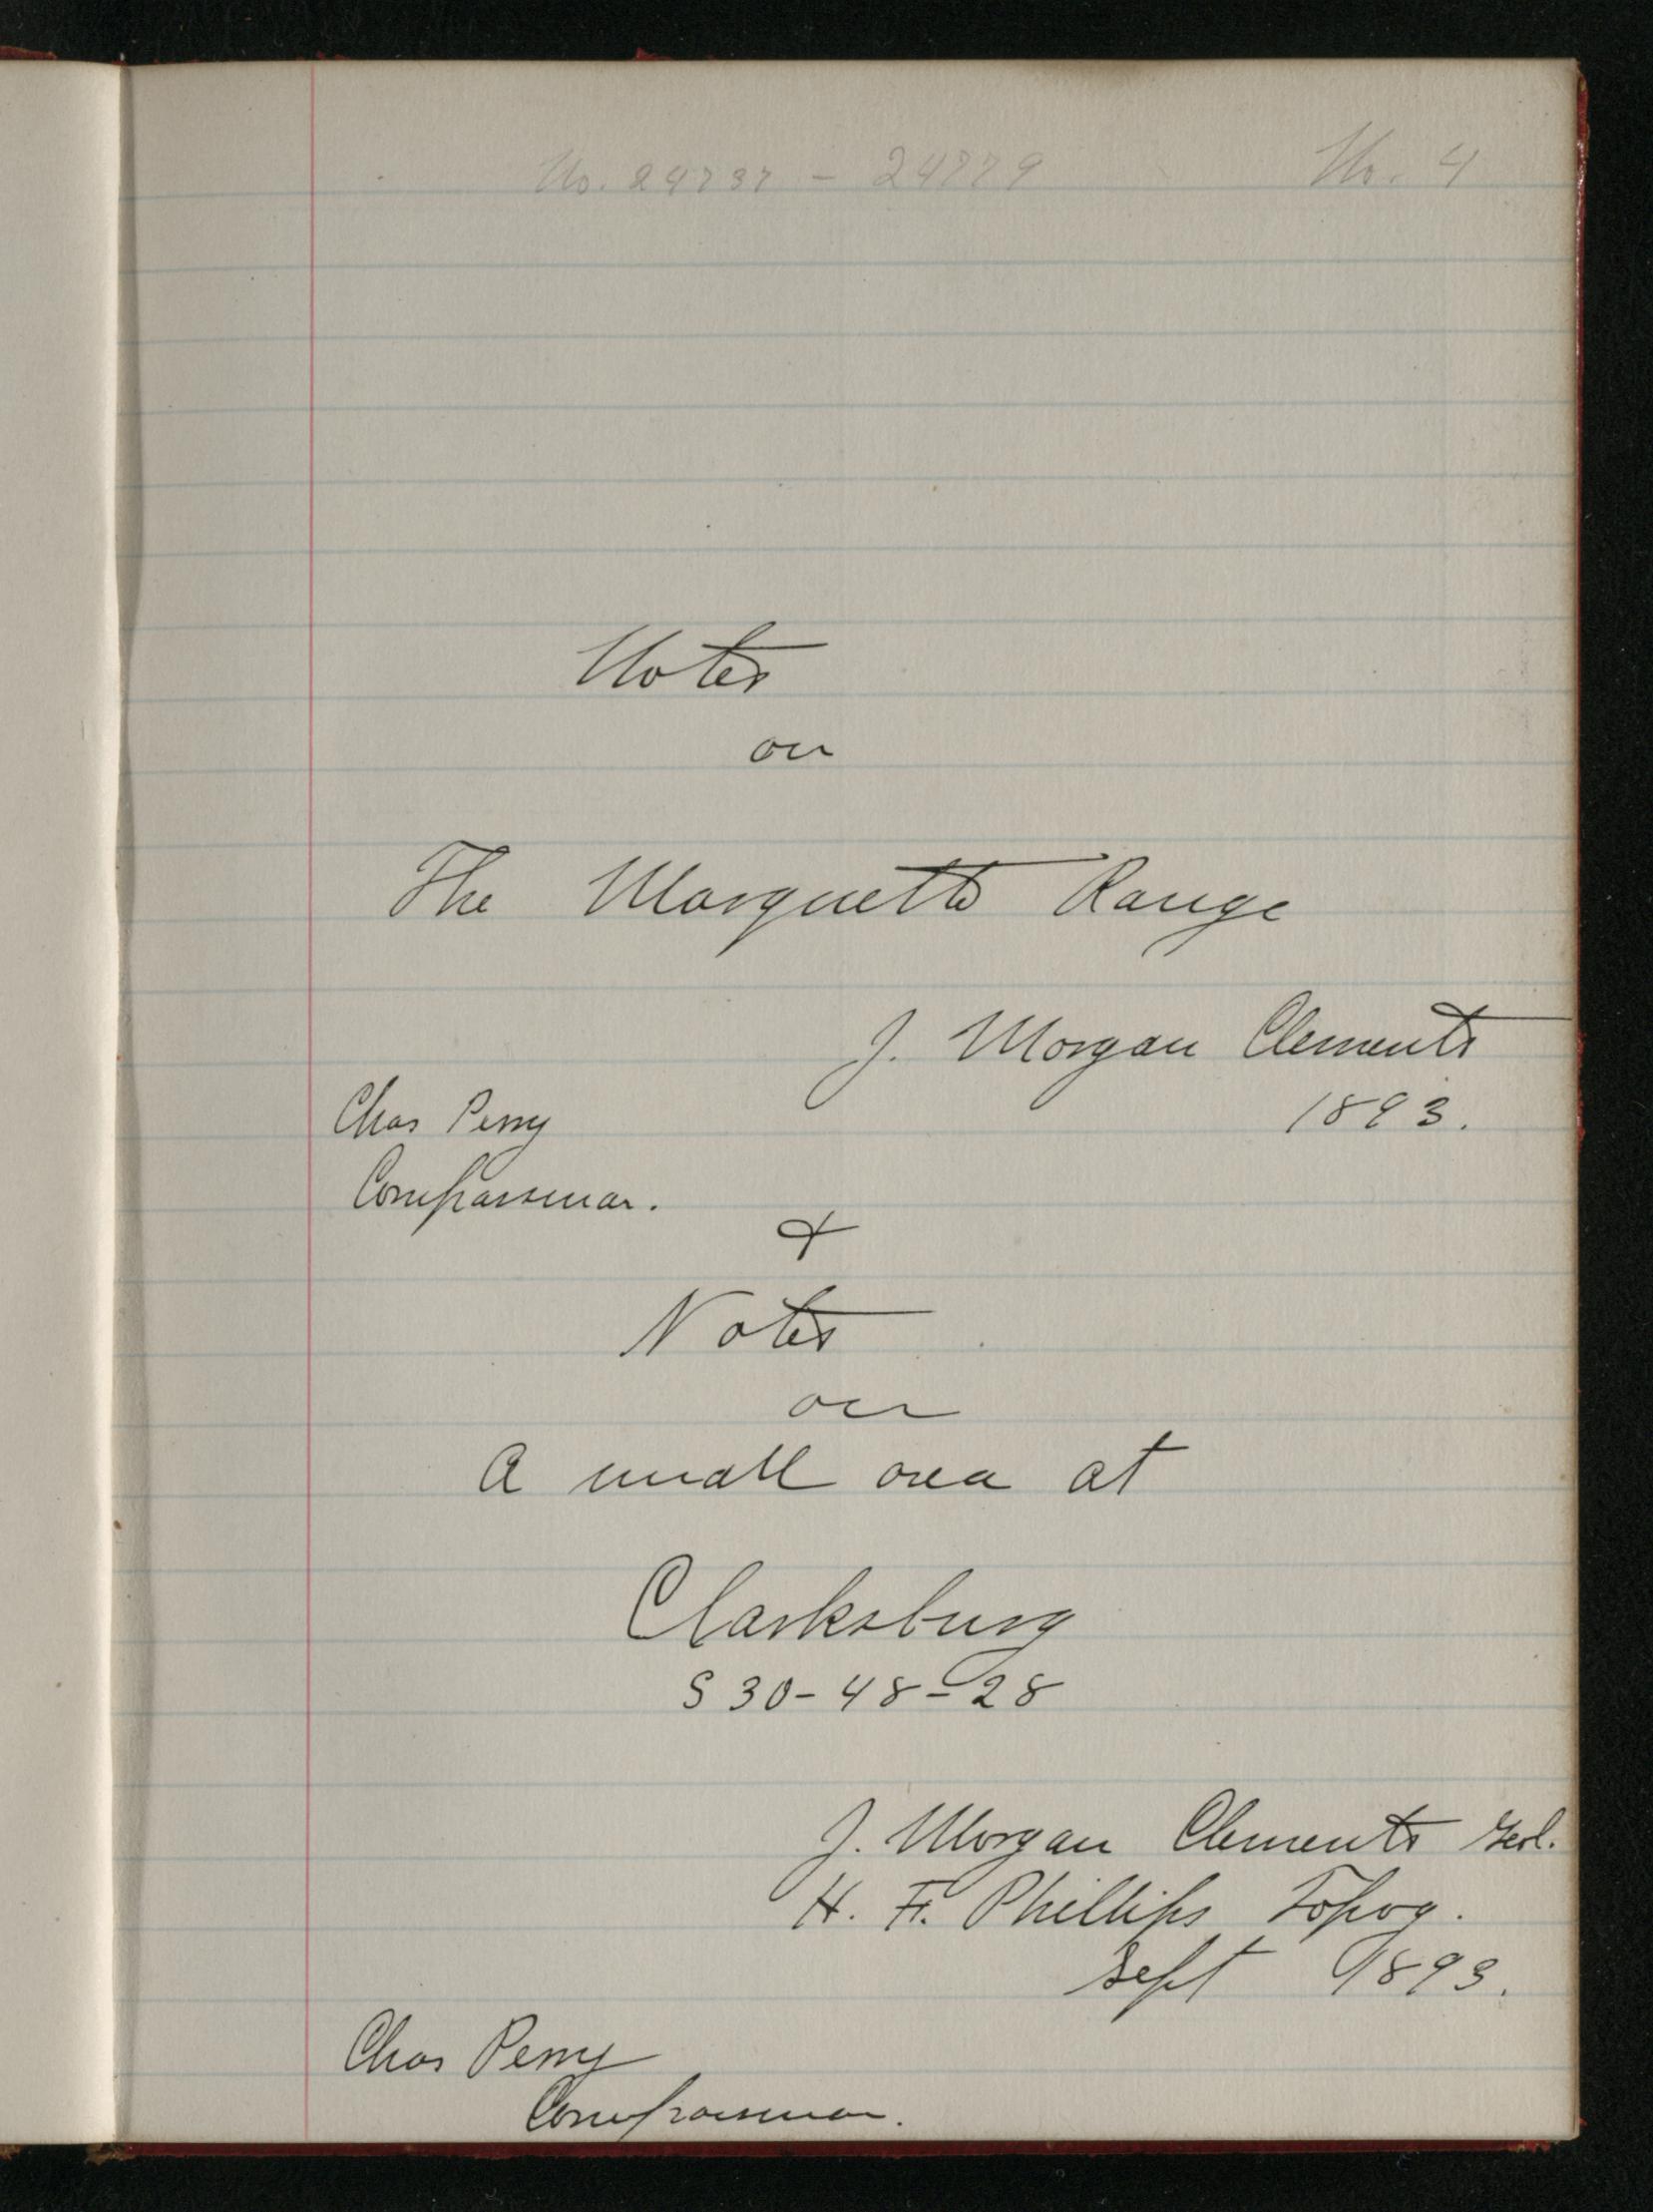 No. 24737 - 24779 No. 4
Notes
on
The Marquette Range
J. Morgan Clements
1893.
Chas Perry
Compassman.
&
Notes
on
A small area at
Clarksburg
S 30-48-28
J. Morgan Clements Geol.
H. F. Phillips Topog.
Sept 1893.
Chas Perry
Compassman.